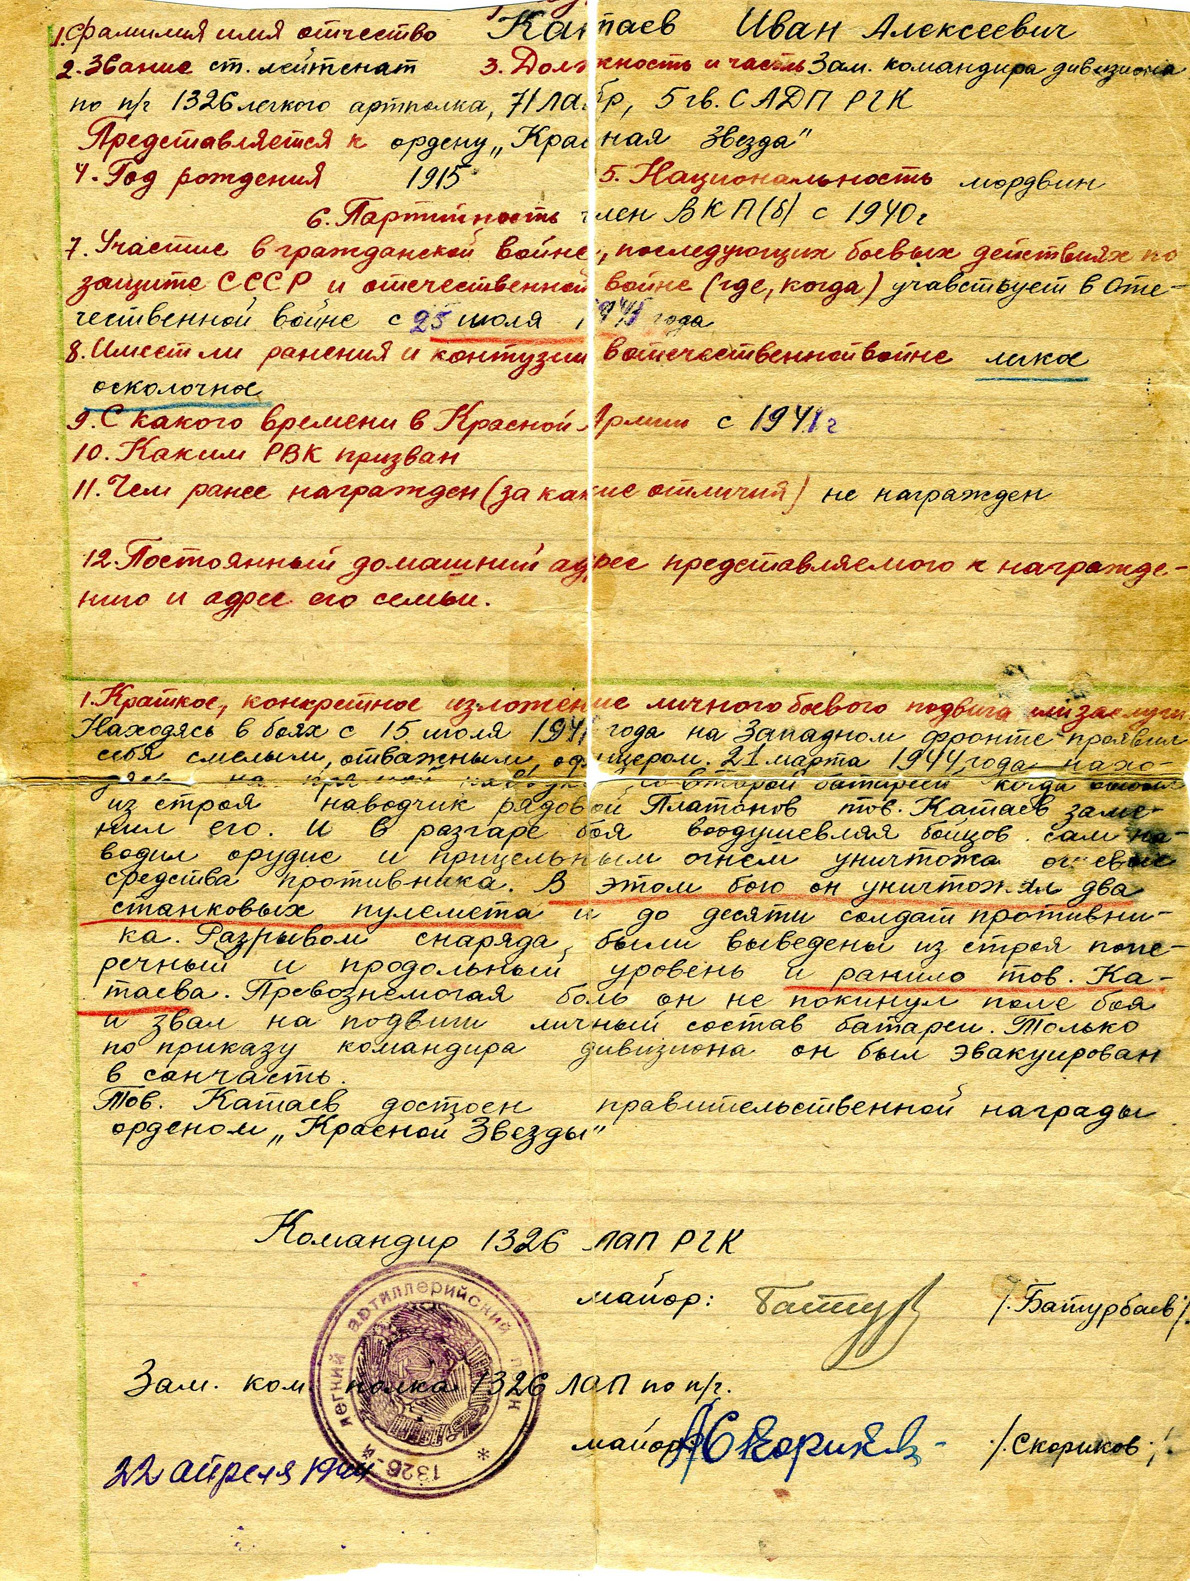 1. Фамилия имя отчество Катаев Иван Алексеевич
2. Звание ст. лейтенат 3. Должность и часть Зам. командира дивизиона
по п/г 1326 легкого артполка, 71 лабр, 5 гв. САДП РГК
Представляется к ордену „Красная Звезда"
4. Год рождения 1915 5. Национальность мордвин
6. Партийность член ВКП(б) с 1940 г
7. Участие в гражданской войне, последующих боевых действиях по
защите СССР и отечественной войне (где, когда) учавствует в Оте-
чественной войне с 25 июля года
8. Имеет ли ранения и контузии в отечественной войне легкое
осколочное
9. С какого времени в Красной Армии с 1941 г
10. Каким РВК призван
11. Чем ранее награжден (за какие отличия) не награжден
12. Постоянный домашний адрес представляемого к награжде-
нию и адрес его семьи.
1. Краткое, конкретное изложение личного боевого подвига или заслуги
Находясь в боях с 15 июля года на Западном фронте проявил
себя смелым, отважным, офицером. 21 марта 1944 года нахо-
на второй батареи когда
из строя наводчик рядовой Платонов тов. Катаев заме-
нил его. И в разгаре боя воодушевляя бойцов сам на-
водил орудие и прицельным огнем уничтожа огневые
средства противника. В этом бою он уничтожил два
станковых пулемета и до десяти солдат противни-
ка. Разрывом снаряда, были выведены из строя попе-
речный и продольный уровень и ранило тов. Ка-
таева. Превознемогая боль он не покинул поле боя
и звал на подвиги личный состав батареи. Только
по приказу командира дивизиона он был эвакуирован
в санчасть.
Тов. Катаев достоен правительственной награды
орденом „Красной Звезды"
Командир 1326 ЛАП РГК
майор: /Батурбаев/
Зам. ком полка 1326 ЛАП по п/г.
майор: Скориков /Скориков/
22 апреля 1944
1326-й легкий артиллерийский полк *